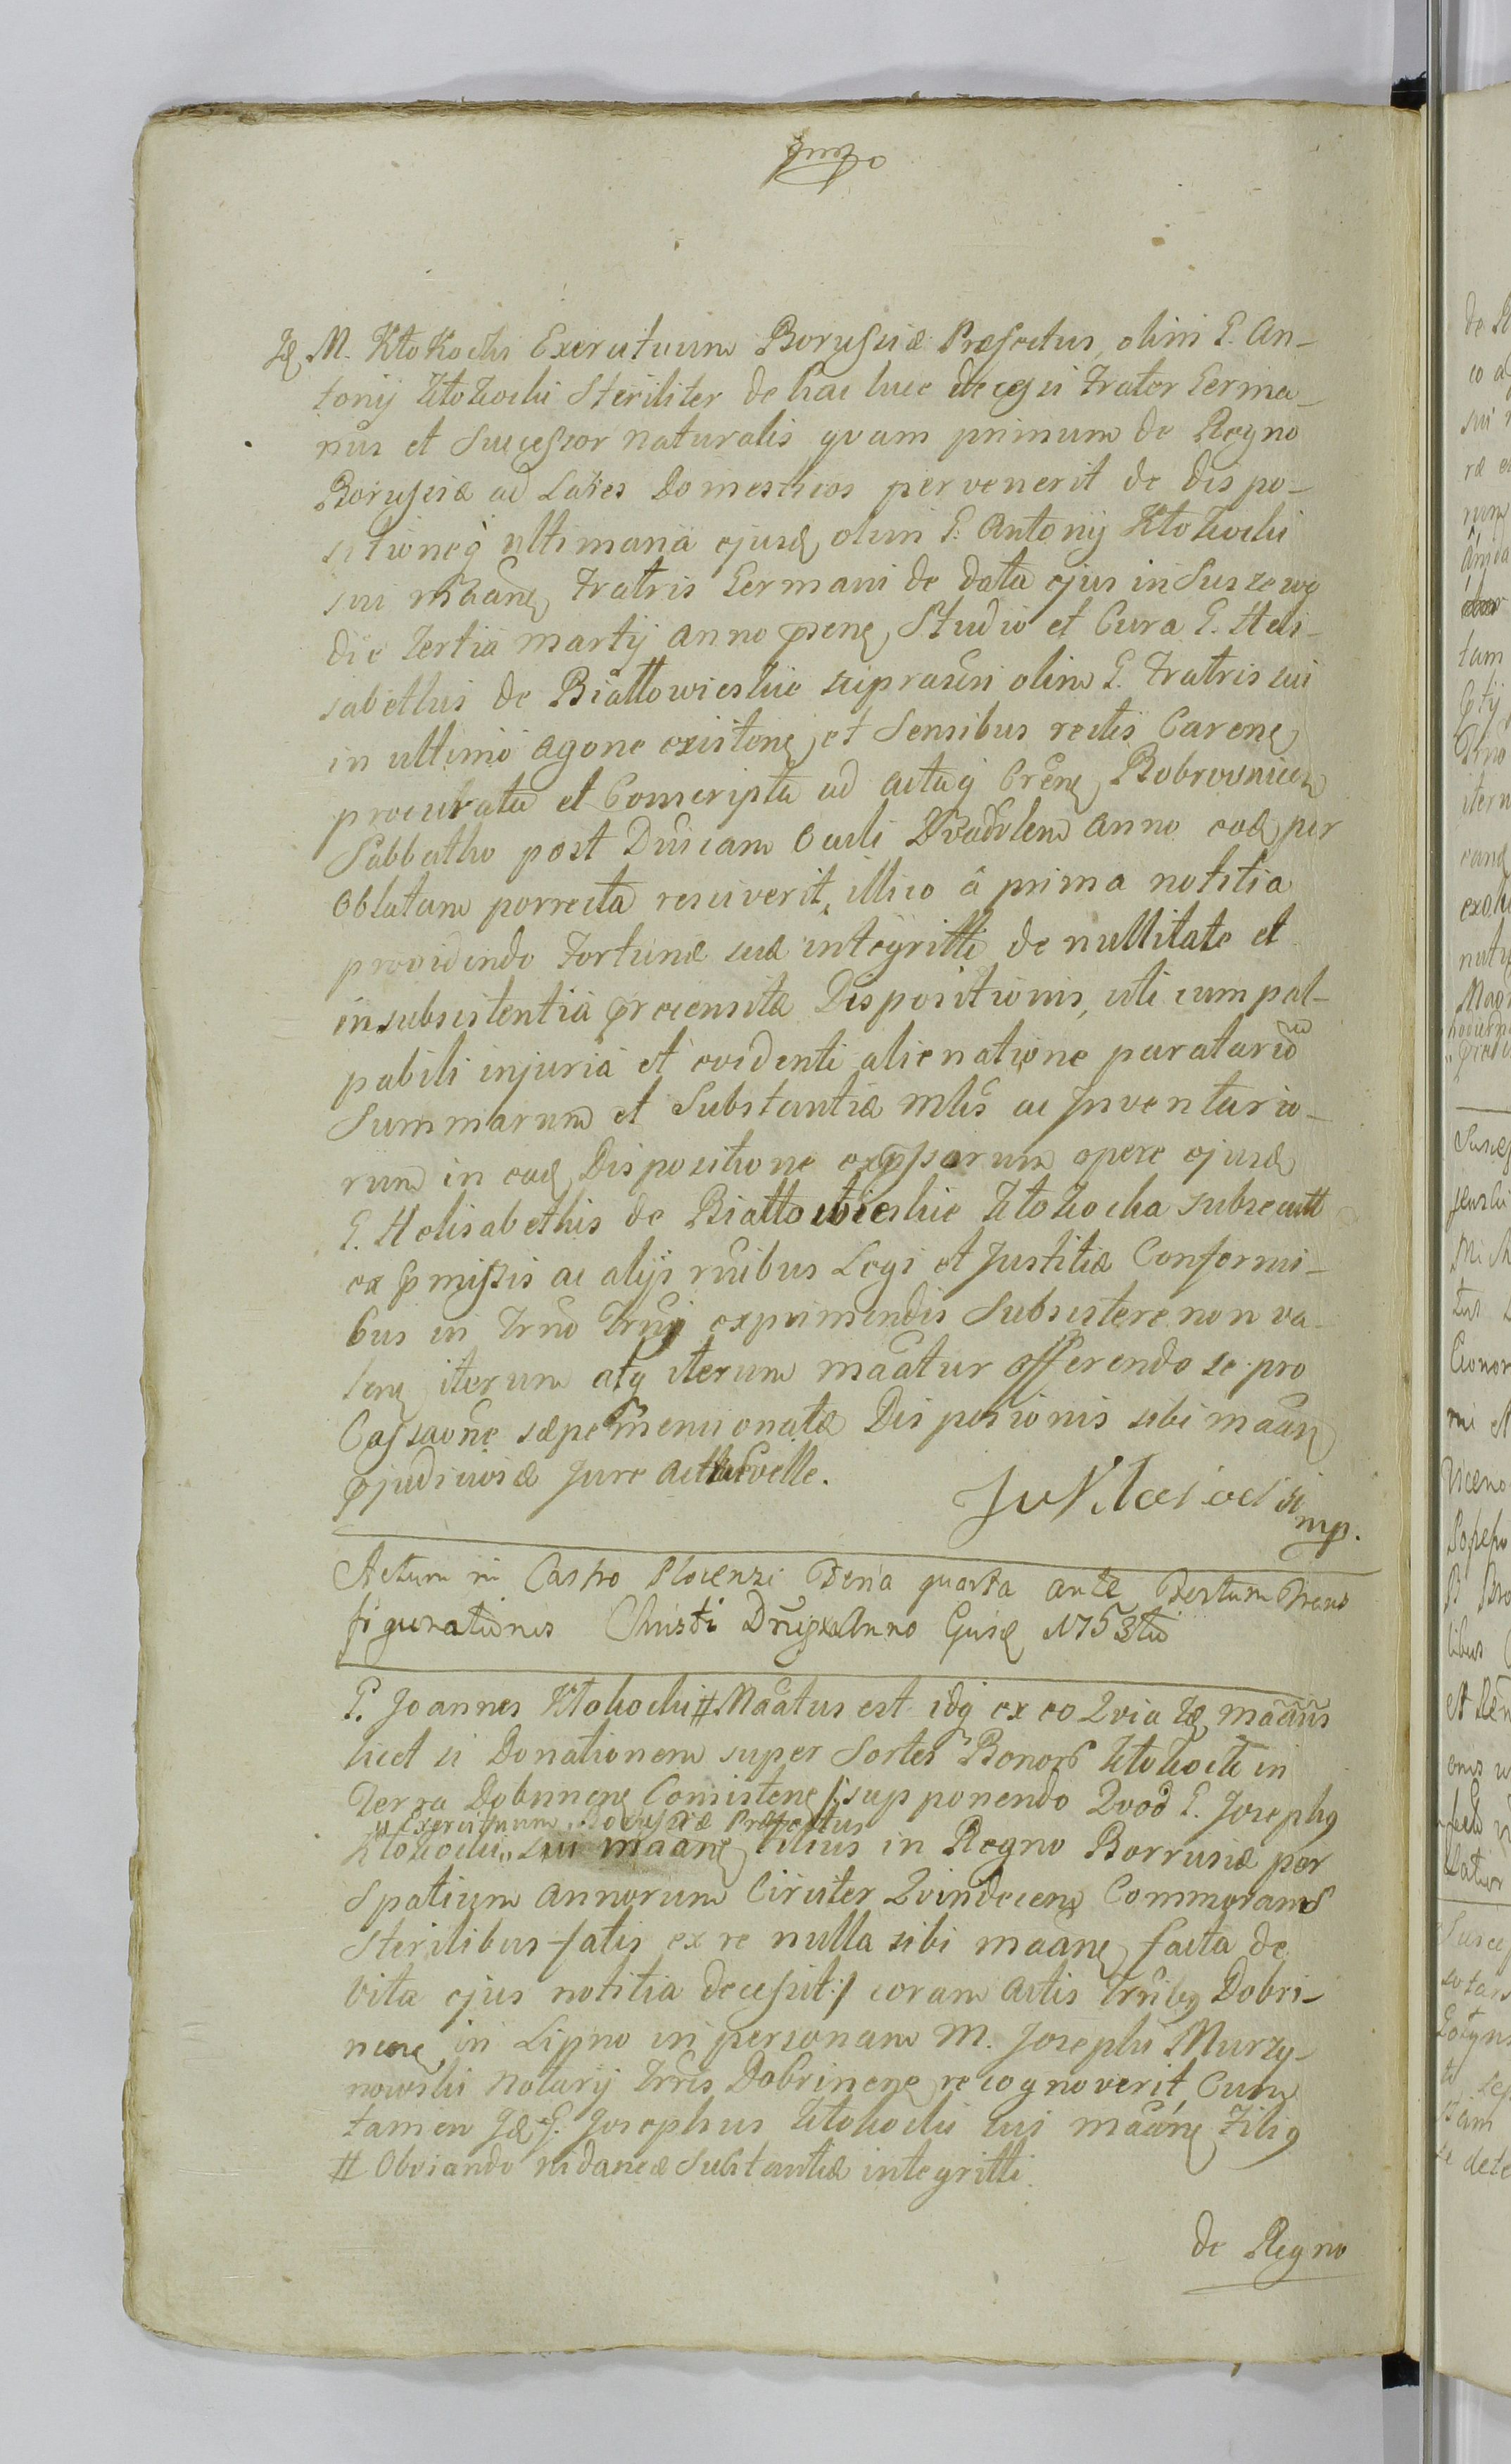 M. Kłokocki Exercituum Borussiæ Præfectus, olim G. An-
tonij Kłokocki Steriliter de hac luce decessi Frater Germa-
nus et Successor naturalis quam primum de Regno
Borussiæ ad Lares Domesticos pervenerit de dispo-
sitioneq ultimaria ejusd olim G. Antonij Kłokocki
sui mãanẽ Fratris Germani de data ejus in Suszewo
die tertia Martij anno pñnẽ, Studio et Cura G. Heli-
sabethis de Białłowieskie supraseri olim G. Fratris sui
in ultimo agone existenẽ, et Sensibus rectis Carenẽ
procurata et Conscripta ad actaq Crẽnẽ Bobrovnicen
Sabbatho post Dnicam Oculi Qvadrlem anno eod per
Oblatam porrecta resciverit, illico â prima notitia
providendo Fortunæ suæ integritti de nullitate et
insubsistentia præcensitæ Dispositionis, uti cum pal-
pabili injuria et evidenti alienatione paratarum
Summarum et Substantiæ mblis ac Inventario-
rum in ead Dispositione expssarum opere ejusd
G. Helisabethis de Białłowieskie Kłokocka subsecutt
ex pmissis ac alijs rõnibus Legi et Justitiæ Conformi-
bus in Trno Trnj exprimendis Subsistere non va-
lenẽ iterum atq iterum mãatur offerendo se pro
Cassaõne sæpe mencionatæ Disposionis sibi mãanẽ
pjudiciosæ Jure velle.
mp.
Actum in Castro Plocensi Feria quarta ante Festum Trans
figurationis Christi Dni Anno Ejusd 1753tio
G. Joannes Kłokocki # Mãatus est idq ex eo Qvia Id mãans
licet si Donationem super Sortes Bonorũ Kłokock in
Terra Dobrinenẽ Consistenẽ /: supponendo Qvod G. Josephq
" Exercituum Borussiæ Præfectus
Kłokocki " sui mãanẽ Filius in Regno Borrusiæ per
Spatium annorum Circiter Qvindecem Commorans
Sterilibus fatis ex re nulla sibi mãanẽ facta de
vita ejus notitia decessit :/ coram actis Trribq Dobri-
nenẽ in Lipno in personam M. Josephi Murzy-
nowski Notarij Trris Dobrinenẽ recognoverit Cum
tamen Id G. Josephus Kłokocki sui mãanẽ Filiq
# Obviando sub Substantiæ integritti.
de Regno